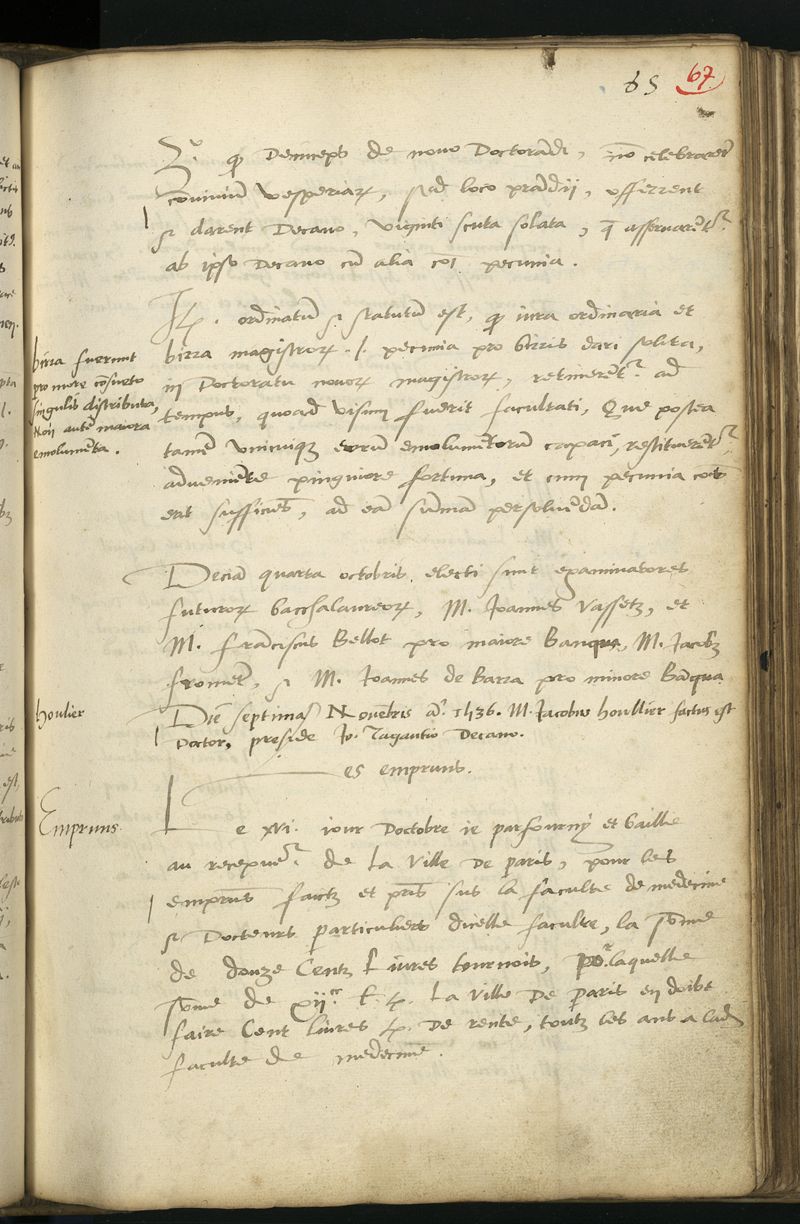 65 67
2º. q deinceps de novo Doctorādi, nō celebrarēt
conviviū vesperiarꝝ, sed loco prādii, offerrent
et darent Decano, viginti scuta solata, q̄ asservarēt^r
ab ipso Decano cū alia coī pecunia.
Itꝫ. ordinatū et statutū est, q iura ordinaria et
birra magistrorꝝ .s. pecunia pro birris dari solita,
in Doctoratu novorꝝ magistrorꝝ, retinerēt^r ad
tempus, quoad visum fuerit facultati, Que postea
tamē unicuiqꝫ eorum emolumētorum capaci, restituerēt^r
adveniēte pinguiore fortuna, et cum pecunia
erit sufficiēs, ad eā summā persolvēdā.
birra fuerunt
pro more cōsueto
singulis distributa,
Non autē maiora
emolumēta.
Deciā quarta octobris electi sunt examinatores
futurorꝝ bacchalaureorꝝ, M. Joannes Vassetz, et
M. frāciscus Bellot pro maiore Banqua, M. Jacobꝫ
fromēt, et M. Joannes de Barra pro minore Bāqua
houlier
Die septima Novēbris aº. 1536. M. Jacobus houllier factus est
Doctor, preside Jo. Tagautio Decano.
Les empruns.
Empruns
Le xvi. iour Doctobre ie parfourny et baille
au recepue^r de la Ville de paris, pour les
empruns faictz et prīs sus la faculte de medecine
et Docteurs particuliers dicelle faculte, la sōme
de douze Centz Livres tournois, po^r. laquelle
sōme de xii^cc ł. t. la Ville de paris en doibt
faire Cent livres t. de rente, toutz les ans a lad
faculte de medecine.